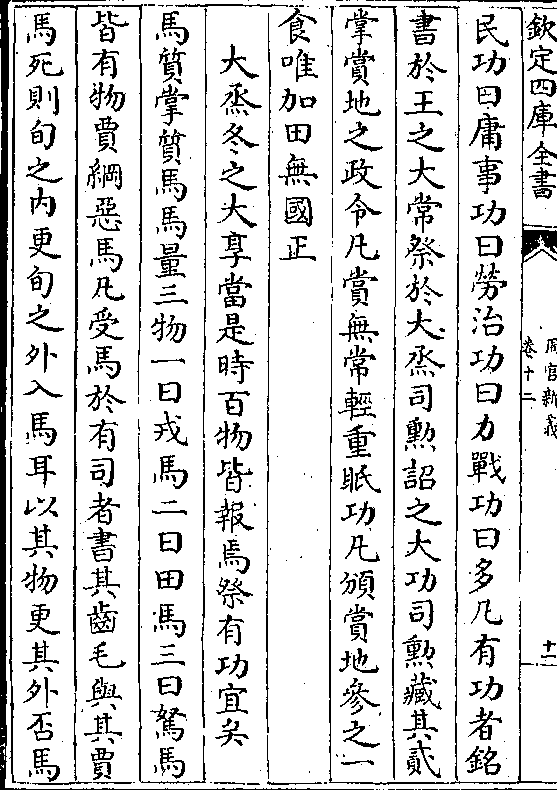 欽定四庫全書
周官新義
卷十二
十二
民功曰庸事功曰勞治功曰力戰功曰多凡有功者銘
書於王之大常祭於大烝司勲詔之大功司勲藏其貳
掌賞地之政令凡賞無常輕重眂功凡頒賞地參之一
食唯加田無國正
大烝冬之大享當是時百物皆報焉祭有功宜矣
馬質掌質馬馬量三物一曰戎馬二曰田馬三曰駑馬
皆有物賈綱惡馬凡受馬於有司者書其齒毛與其賈
馬死則旬之内更旬之外入馬耳以其物更其外否馬